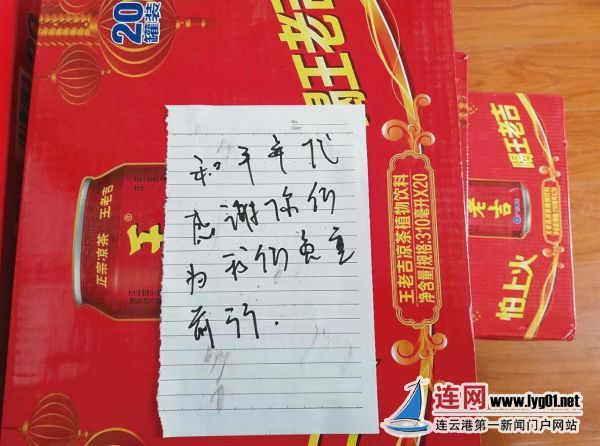 20
罐装
喝王老吉
No.
Date
和平年代
感谢你们
为我们负重
前行.
正宗凉茶 王老吉
王
王老吉凉茶植物饮料
净含量/规格:310毫升X20
喝王老吉
老吉
怕上火
连网 www.lyg01.net
连云港第一新闻门户网站